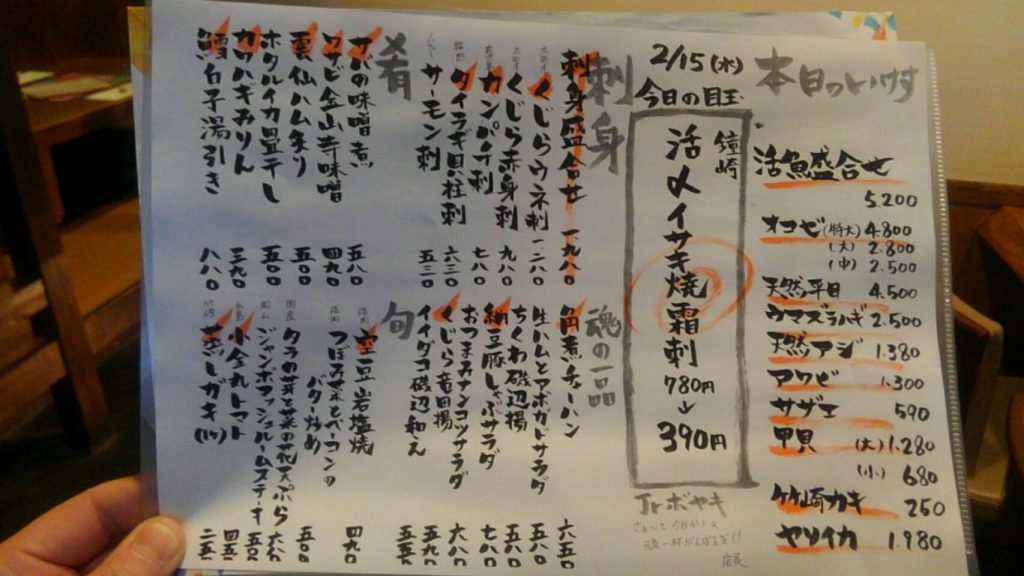 本日のいけす
活魚盛合せ
5.200
オコゼ(特大) 4.800
(大) 2.800
(中) 2.500
天然平目 4.500
ウマズラハギ 2.500
天然アジ 1.380
アワビ 1.300
サザエ 590
甲貝 (大) 1.280
(小) 680
竹崎カキ 250
ヤリイカ 1.980
2/15(水)
今日の目玉
鐘崎
活〆イサキ焼霜刺
780円
↓
390円
Jrボヤキ
さぁ〜て今日から又
頑一杯がんばるぞ!!
店長
刺身
刺身盛合せ 一九八〇
くじらウネ刺 一二八〇
くじら赤身刺 九八〇
カンパチ刺 七八〇
タイラギ貝柱刺 六三〇
サーモン刺 五三〇
肴
サバの味噌煮 五八〇
ワサビ金山寺味噌 四九〇
雲仙ハム炙り 五〇〇
ホタルイカ畳干し 五〇〇
カワハギみりん 三九〇
鱈白子湯引き 八八〇
魂の一品
角煮チャーハン 六五〇
生ハムとアボカドサラダ 五八〇
ちくわ磯辺揚 五八〇
納豆豚しゃぶサラダ 七八〇
おつまみナンコツサラダ 六八〇
くじら竜田揚 五九〇
イイダコ磯辺和え 五五〇
旬
空豆岩塩焼 四九〇
福岡 つぼみ菜とベーコンの
バター炒め 五〇〇
国産 タラの芽と菜の花天ぷら 六八〇
岡山 ジャンボマッシュルームステーキ 五五〇
小金丸トマト 四五〇
蒸しガキ(1ケ) 二五〇